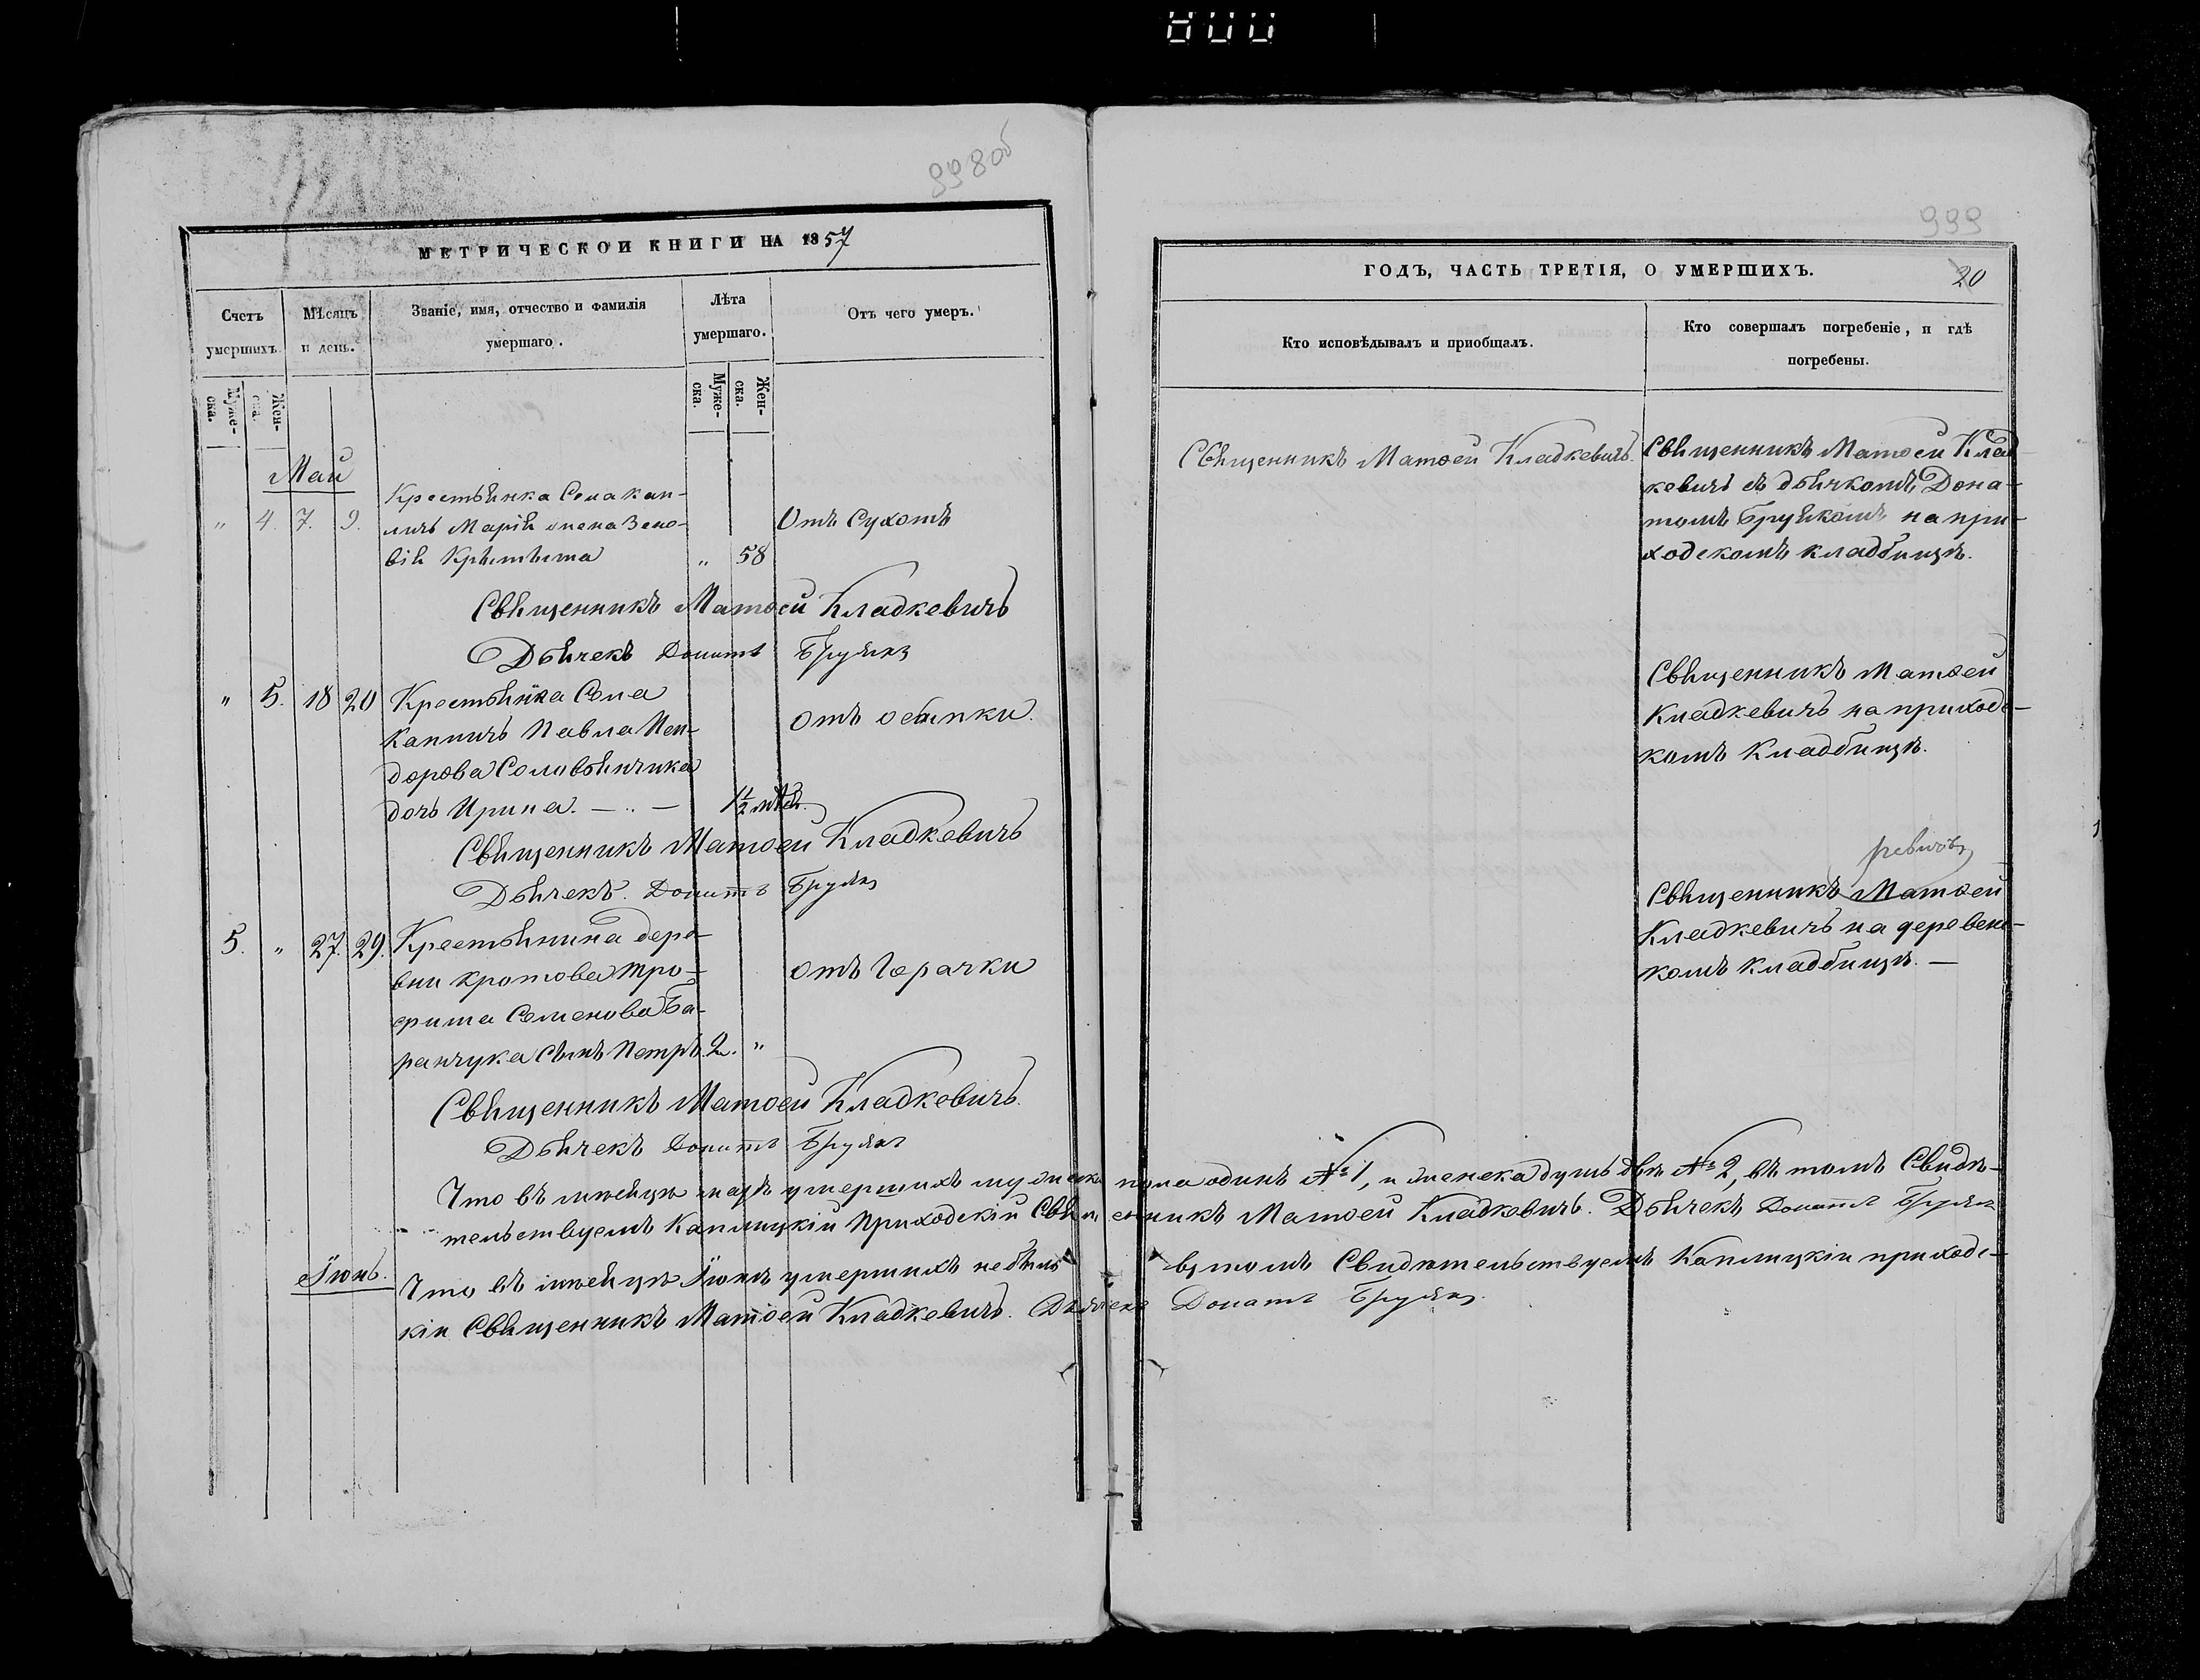 800
998об
МЕТРИЧЕСКОЙ КНИГИ НА 1857
Счетъ умершихъ.
Мѣсяцъ и день.
Званіе, имя, отчество и фамилія умершаго.
Лѣта умершаго.
Отъ чего умеръ.
Муже-ска.
Жен-ска.
Муже-ска.
Жен-ска.
Май
" 4. 7. 9.
Крестьянка Села Кап-
личъ Марія жена Зено-
вія
" 58
Отъ Сухотъ
Священникъ Матѳей Кладкевичъ
Дьячекъ Донатъ Бруякъ
" 5. 18 20
Крестьянка Села
Капличъ Павла Неп-
дорова Соловьянчика
дочь Ирина. — .. —
1 1/2 мѣся.
отъ осыпки.
Священникъ Матѳей Кладкевичъ
Дьячекъ. Донатъ Бруякъ
5. " 27. 29.
Крестьянина дере-
вни Кротова
Семенова Ба-
ранчука сынъ Петръ. 2. "
отъ Горачки
Священникъ Матѳей Кладкевичъ.
Дьячекъ Донатъ Бруякъ
Что въ мѣсяцѣ маѣ умершихъ мужеска пола одинъ № 1, и женска душъ двѣ № 2, въ томъ Свидѣ-
тельствуемъ Каплицкій Приходскій Священникъ Матѳей Кладкевичъ. Дьячекъ Донатъ Бруякъ
Іюнь.
Что въ мѣсяцѣ Іюнѣ умершихъ небыло въ томъ Свидѣтельствуемъ Каплицкій приходс-
кій Священникъ Матѳей Кладкевичъ. Дьячекъ Донатъ Бруякъ.
999
ГОДЪ, ЧАСТЬ ТРЕТІЯ, О УМЕРШИХЪ.
20
Кто исповѣдывалъ и пріобщалъ.
Кто совершалъ погребеніе, и гдѣ погребены.
Священникъ Матѳей Кладкевичъ.
Священникъ Матѳей Клад
кевичъ съ дьячкомъ Дона-
томъ Бруякомъ на при-
ходскомъ кладбищѣ.
Священникъ Матѳей
Кладкевичъ на приходс-
комъ Кладбищѣ.
Священникъ Матѳей
Кладкевичъ на деревенс-
комъ кладбищѣ. —